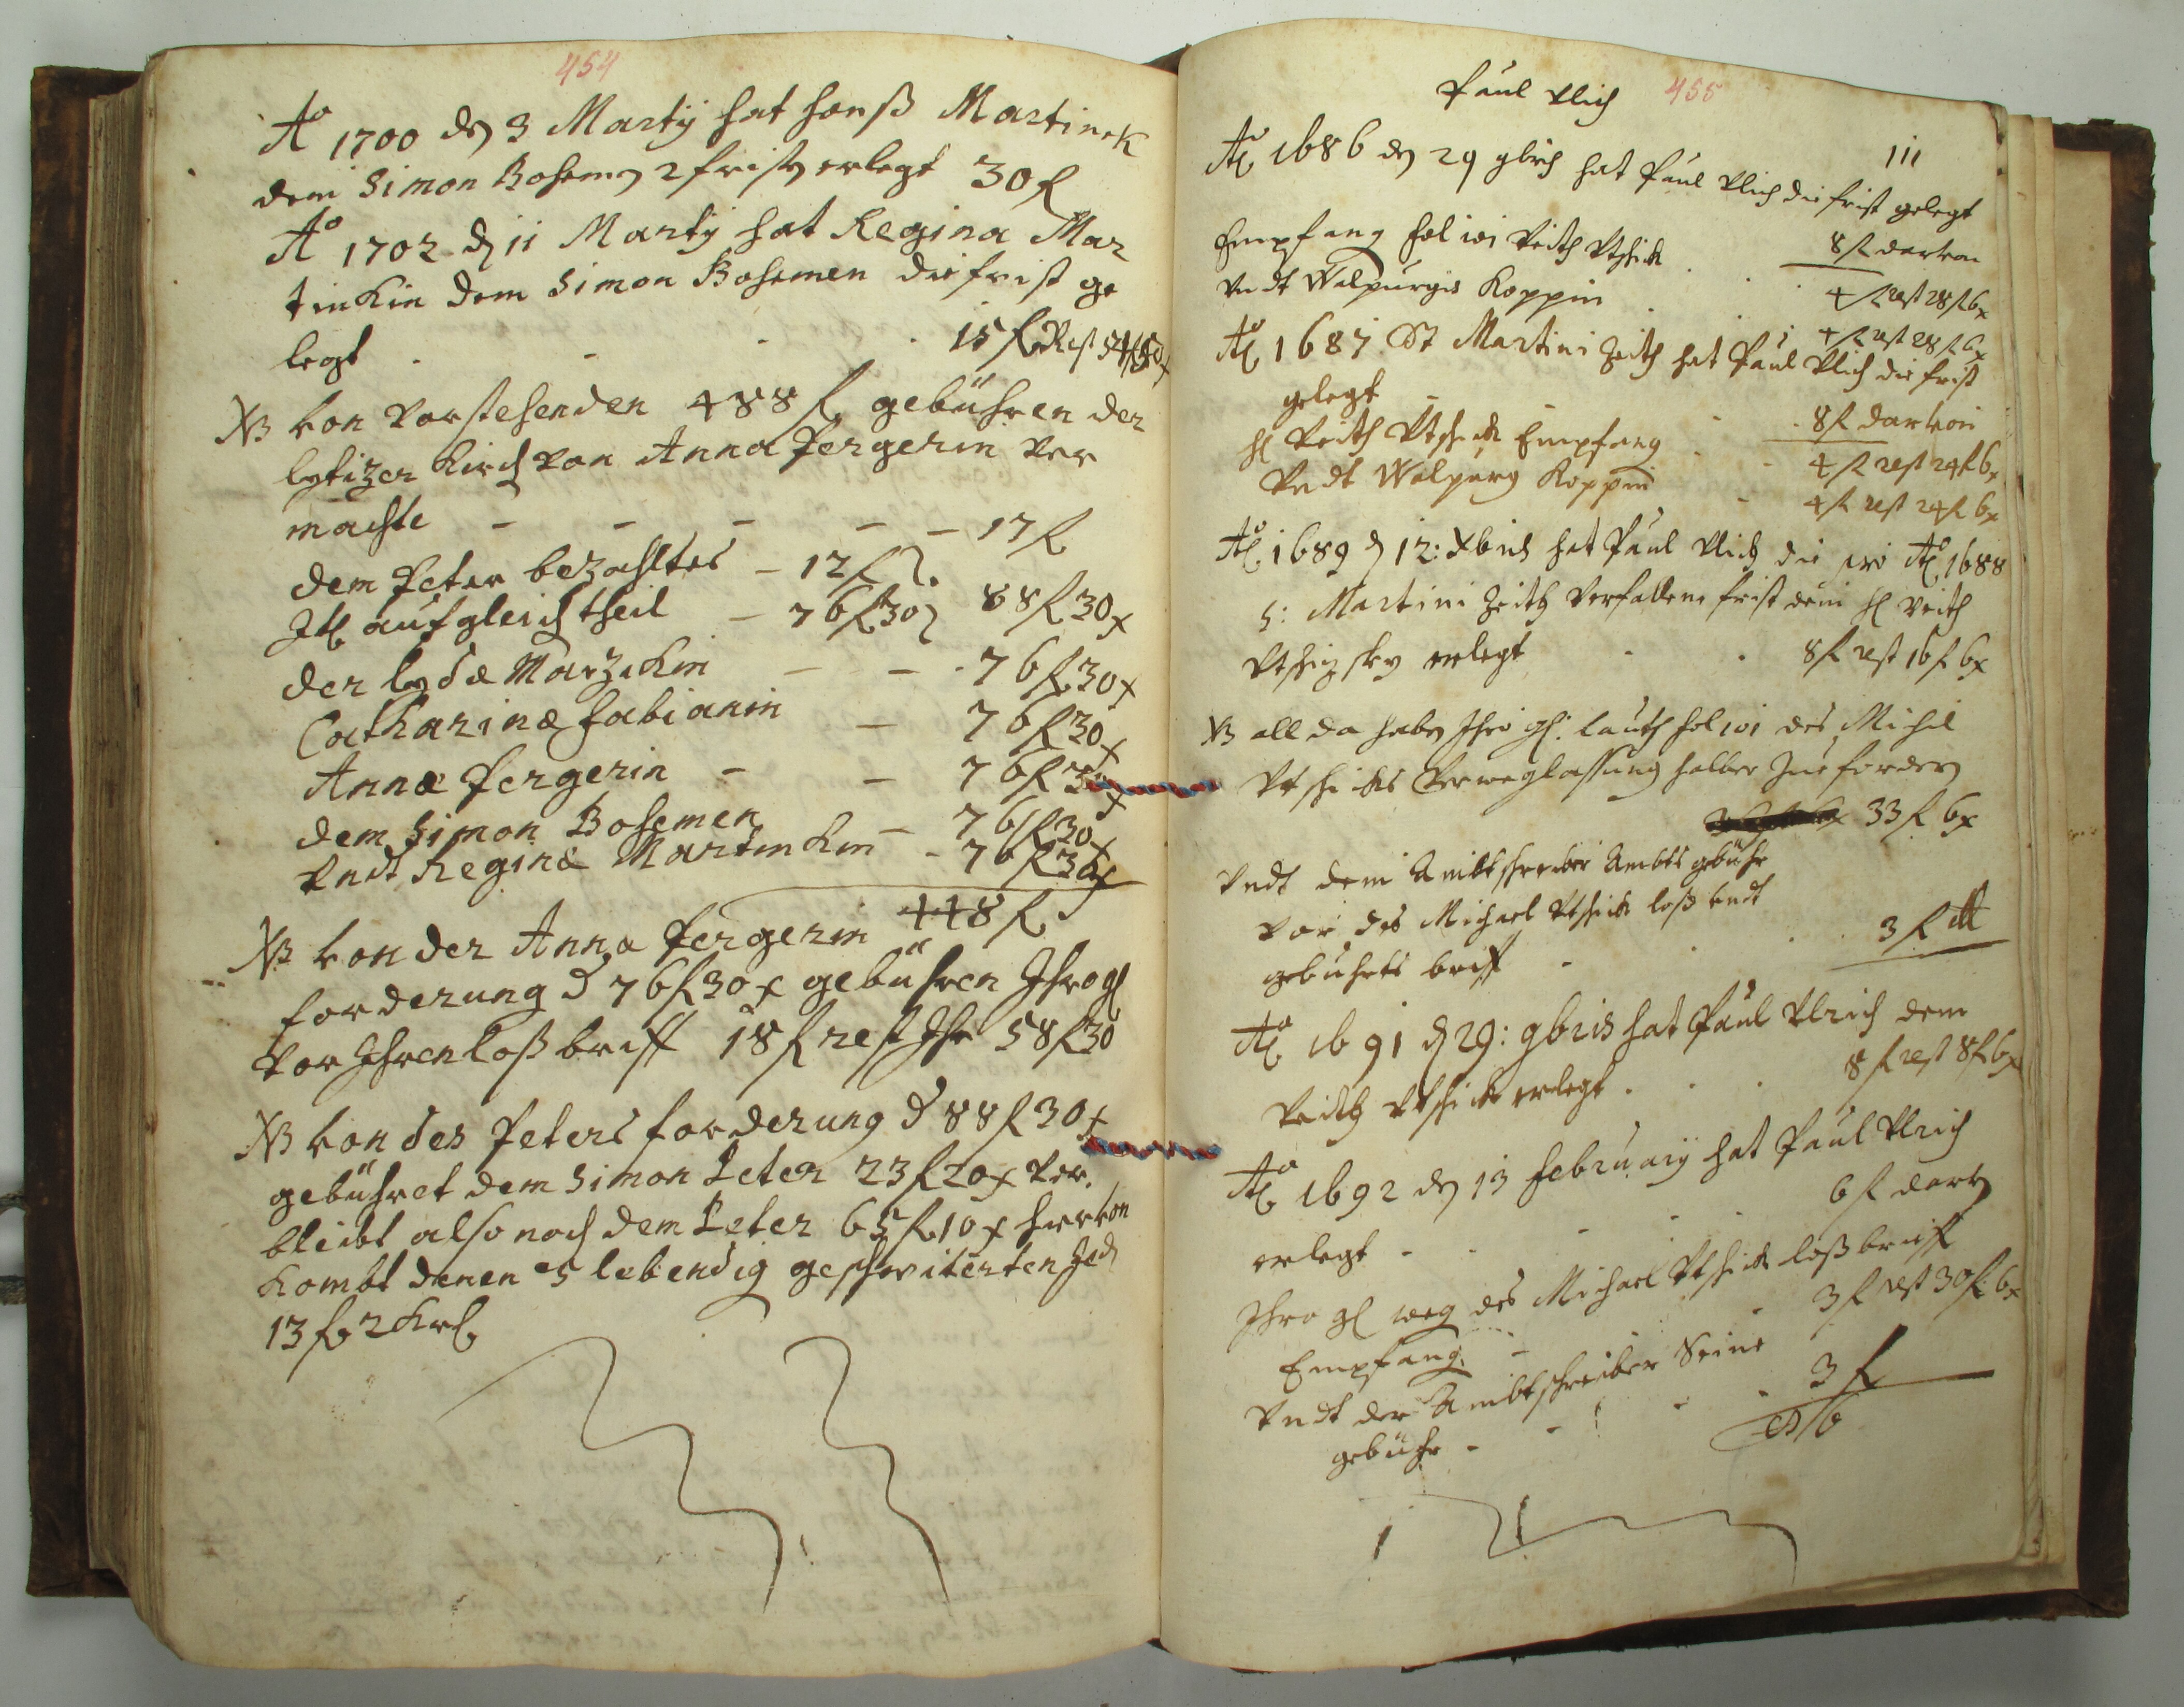 454
Ao 1700 den 3 Martÿ hat Hanß Martinek
dem Simon Bohemen 2 frist erlegt 30 fl
Ao 1702 d 11 Martÿ hat Regina Mar
tinkin dem Simon Bohemen die frist ge
legt . - . . 15 fl Rest
NB von vorstehenden 488 fl gebühren der
Kirch von Anna Pergerin ver
machte - - - - - 17 fl
dem Peter bezahltes - 12 fl
It aufgleich theil - 76 fl 30 88 fl 30 x
der Lyda - - . 76 fl 30 x
Catharinæ Fabianin - 76 fl 30 x
Annæ Pergerin - - 76 fl 30 x
dem Simon Bohemen - 76 fl 30 x
vndt Reginæ Martinkin - 76 fl 30 x
448 fl
NB von der Anna Pergerin
forderung d 76 fl 30 x gebühren Ihro gl
vor Ihren Loßbriff 18 fl rest Ihr 58 fl 30
NB von des Peters forderung d 88 fl 30 x
gebühret dem Simon Peter 23 fl 20 x ver.
bleibt also noch dem Peter 65 fl 10 x hiervon
kombt denen 5 lebendig geschwiterten Jed
13 fl 2 Krl
Paul Vlich 455
111
Ao 1686 den 29 9bris hat Paul Vlich die frist gelegt
8 fl darvon
Empfang fol 101 Veith . . 4 fl rest 28 fl 6 x
vndt Walpurgis Koppin . . 4 fl rest 28 fl 6 x
Ao 1687 St Martini Zeith hat Paul Vlich die frist
gelegt - - . . 8 fl darvon
Veith Empfang . - 4 fl rest 24 fl 6 x
Vndt Walpurg Koppin - 4 fl rest 24 fl 6 x
Ao 1689 d 12: Xbris hat Paul Vlich die pro Ao 1688
S: Martini Zeith verfallene frist dem Veith
erlegt . . 8 fl rest 16 fl 6 x
NB all da haben Ihro gl: lauth fol 101 des Michel
Verweglassung halber Zue fordern
33 fl 6 x
vndt dem Ambtschreiber Ambts gebühr
vor des Michael loß vndt
geburts briff - . . . 3 fl
Ao 1691 d 29: 9bris hat Paul Vlrich dem
Veith erlegt . . . 8 fl rest 8 fl 6 x
Ao 1692 den 13 Februarÿ hat Paul Vlrich
erlegt - - - - - 6 fl darvon
Ihro gl weg des Michael loßbrieff
Empfang. - - 3 fl rest 30 fl: 6 x
vndt der Ambtschreiber Seine
gebühr - - - . 3 fl